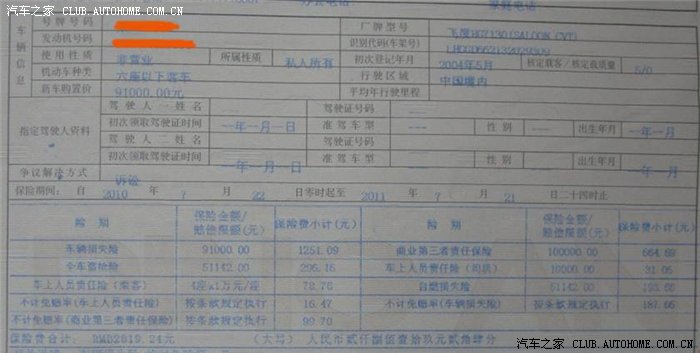 汽车之家 CLUB.AUTOHOME.COM.CN
办公电话 家庭电话
车辆信息
号牌号码 厂牌型号 飞度HG7130(SALOON CVT)
发动机号码 识别代码(车架号)
使用性质 非营业 所属性质 私人所有 初次登记月 2004年5月 核定载客/核定载质量 5/0
机动车种类 六座以下客车 行驶区域 中国境内
新车购置价 91000.00元 平均年行驶里程
指定驾驶人资料
驾驶人一姓名 ---- 驾驶证号码 ----
初次领取驾驶证时间 --年--月--日 准驾车型 --- 性别 -- 出生年月 --年--月
驾驶人二姓名 ---- 驾驶证号码 ----
初次领取驾驶证时间 --年--月--日 准驾车型 --- 性别 -- 出生年月 --年--月
争议解决方式 诉讼
保险期间: 自 2010 年 7 月 22 日零时起至 2011 年 7 月 21 日二十四时止
险别 保险金额/赔偿限额(元) 保险费小计(元) 险别 保险金额/赔偿限额(元) 保险费小计(元)
车辆损失险 91000.00 1251.09 商业第三者责任保险 100000.00 664.69
全车盗抢险 51142.00 295.16 车上人员责任险(司机) 10000.00 31.05
车上人员责任险(乘客) 4座×1万元/座 78.76 自燃损失险 51142.00
不计免赔率(车上人员责任险) 按条款规定执行 16.47 不计免赔率(车辆损失险) 按条款规定执行 187.66
不计免赔率(商业第三者责任保险) 按条款规定执行 99.70
保险费合计: RMB2819.24元 (大写) 人民币贰仟捌佰壹拾玖元贰角肆分
汽车之家 CLUB.AUTOHOME.COM.CN